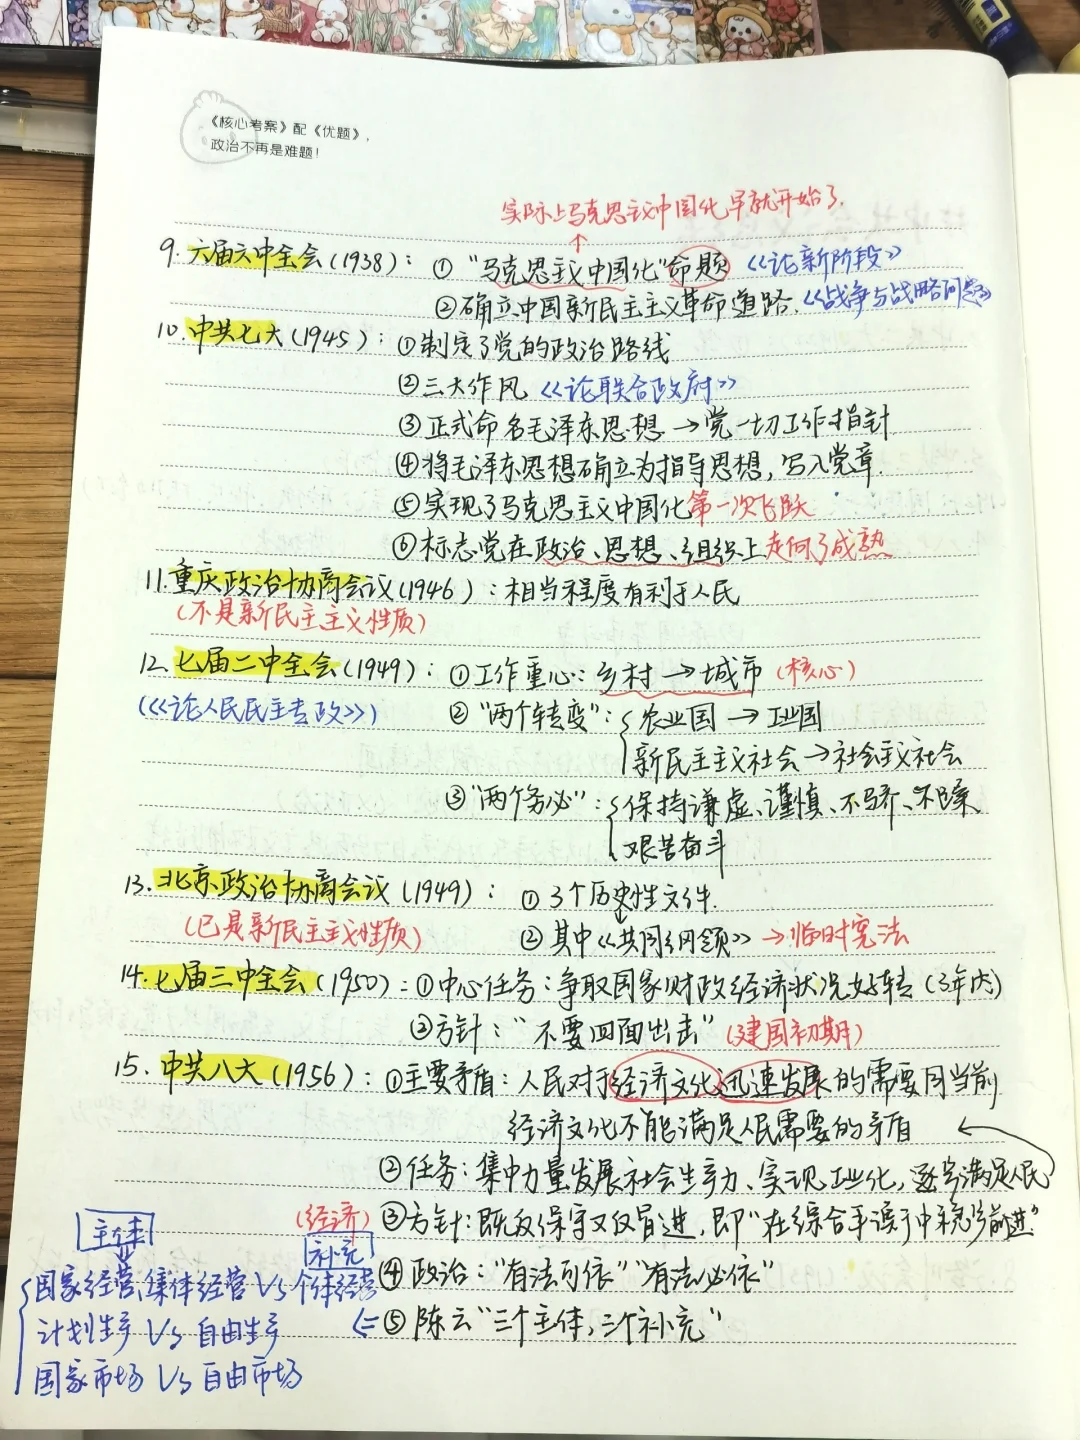 《核心考案》配《优题》，
政治不再是难题！
实际上马克思主义中国化早就开始了.
9. 六届六中全会(1938)：①“马克思主义中国化”命题《论新阶段》
②确立中国新民主主义革命道路.《战争与战略问题》
10. 中共七大(1945)：①制定了党的政治路线
②三大作风《论联合政府》
③正式命名毛泽东思想→党一切工作指针
④将毛泽东思想确立为指导思想，写入党章.
⑤实现了马克思主义中国化第一次飞跃
⑥标志党在政治、思想、组织上走向了成熟
11.重庆政治协商会议(1946)：相当程度有利于人民
(不是新民主主义性质)
12.七届二中全会(1949)：①工作重心：乡村→城市 (核心)
(《论人民民主专政》)
②“两个转变”：{农业国→工业国
新民主主义社会→社会主义社会
③“两个务必”：{保持谦虚、谨慎、不骄、不躁、
艰苦奋斗
13.北京政治协商会议(1949)：①3个历史性文件.
(已是新民主主义性质)
②其中《共同纲领》→临时宪法
14.七届三中全会(1950)：①中心任务：争取国家财政经济状况好转(3年内)
②方针：“不要四面出击”(建国初期)
15.中共八大(1956)：①主要矛盾：人民对于经济文化迅速发展的需要同当前
经济文化不能满足人民需要的矛盾
②任务：集中力量发展社会生产力、实现工业化，逐步满足人民
(经济)③方针：既反保守又反冒进，即“在综合平衡中稳步前进”
④政治：“有法可依”“有法必依”
⇐⑤陈云“三个主体，三个补充”
主体
补充
国家经营、集体经营 Vs 个体经营
计划生产 Vs 自由生产
国家市场 Vs 自由市场